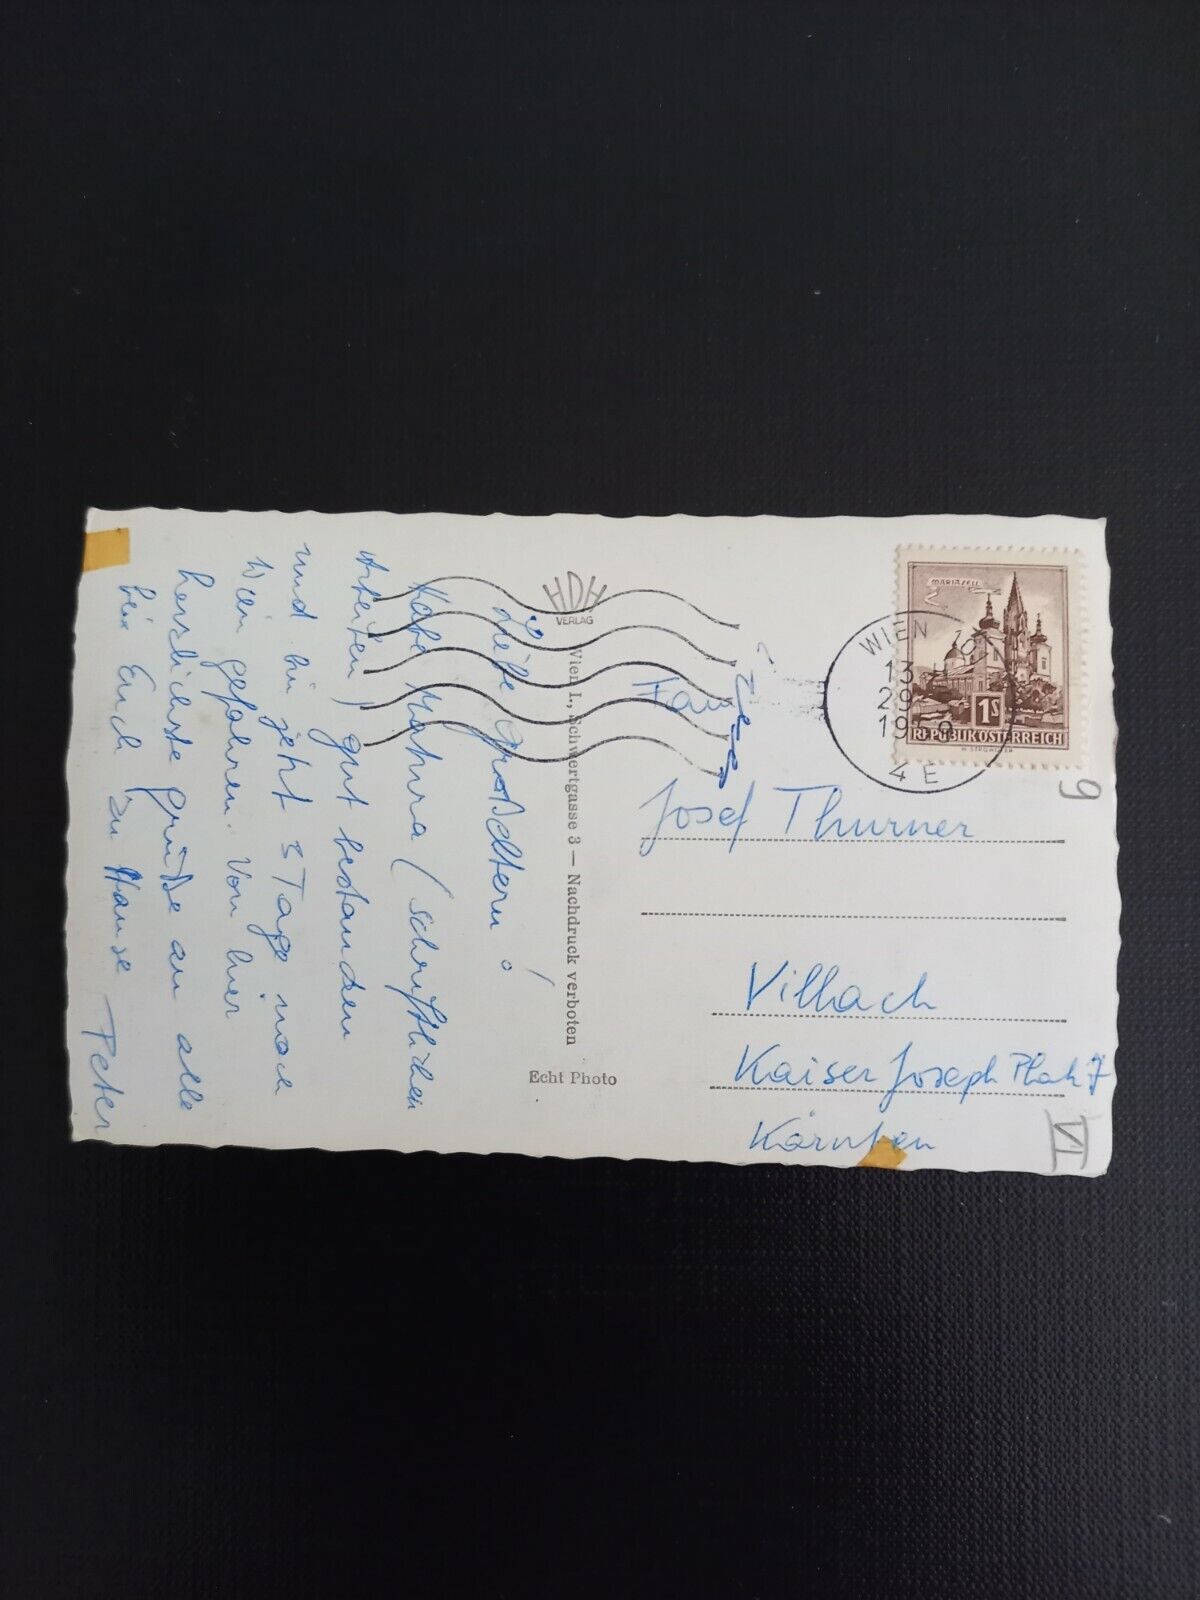 Liebe Großeltern!
Habe Mathura (schriftlichen
Arbeiten) gut bestanden
und bin jetzt 3 Tage nach
Wien gefahren. Von hier
herzlichste Grüße an alle
bei Euch zu Hause
Peter
HDH
VERLAG
Wien I., Schwertgasse 3 — Nachdruck verboten
Echt Photo
MARIAZELL
1S
REPUBLIK ÖSTERREICH
WIEN 101
13
29
4E
Josef Thurner
Villach
Kaiser Joseph Platz 7
Kärnten
9
VI